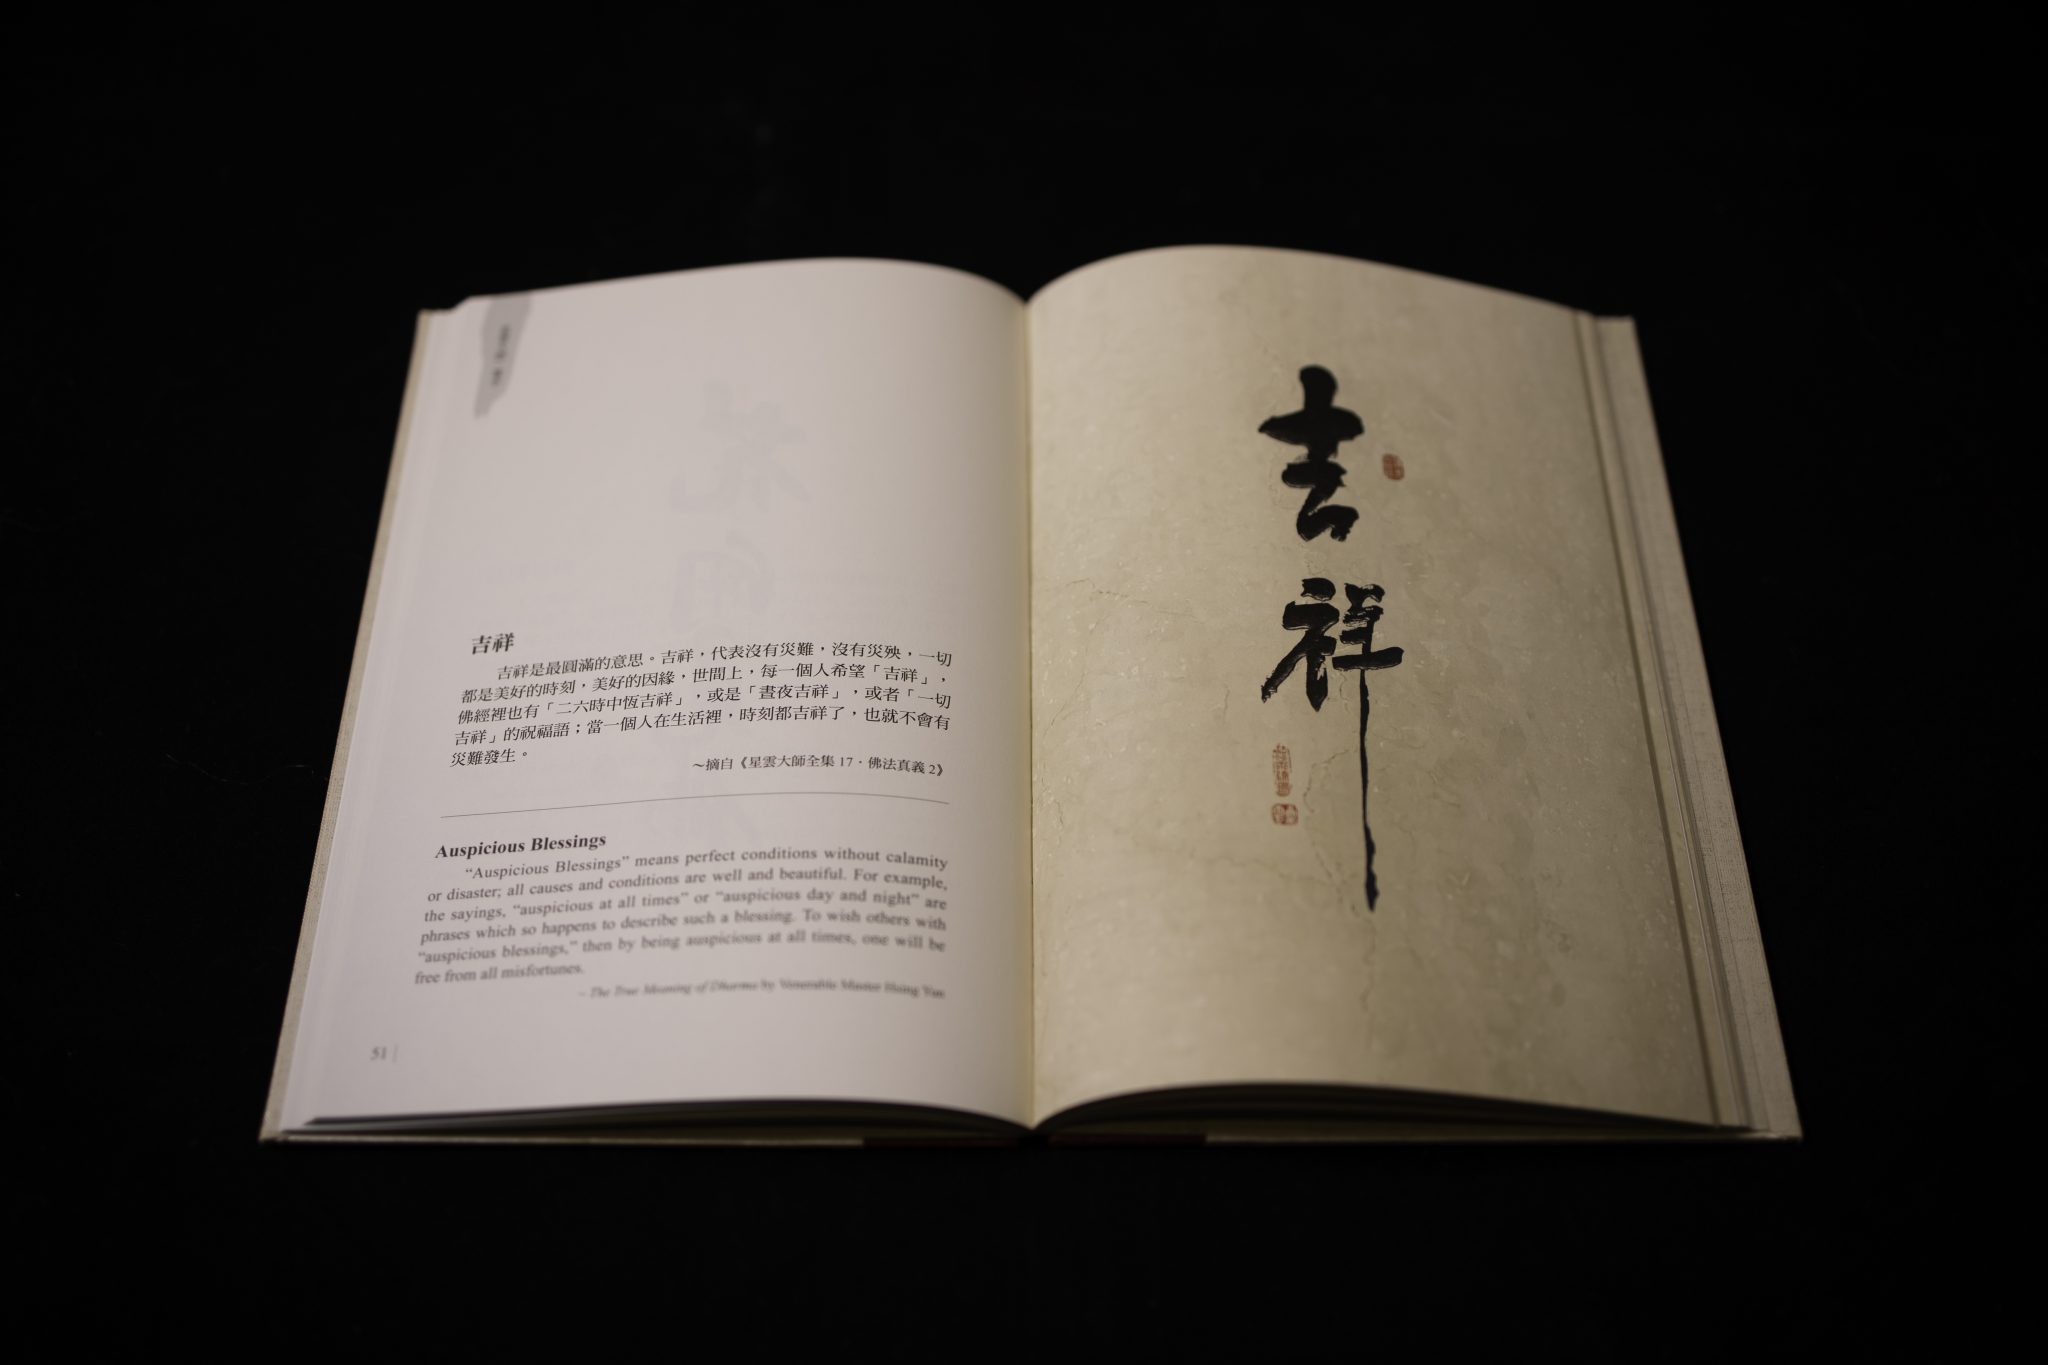 吉祥
吉祥是最圓滿的意思。吉祥，代表沒有災難，沒有災殃，一切
都是美好的時刻，美好的因緣，世間上，每一個人希望「吉祥」，
佛經裡也有「二六時中恆吉祥」，或是「晝夜吉祥」，或者「一切
吉祥」的祝福語；當一個人在生活裡，時刻都吉祥了，也就不會有
災難發生。
～摘自《星雲大師全集 17．佛法真義 2》
Auspicious Blessings
“Auspicious Blessings” means perfect conditions without calamity
or disaster; all causes and conditions are well and beautiful. For example,
the sayings, “auspicious at all times” or “auspicious day and night“ are
phrases which so happens to describe such a blessing. To wish others with
“auspicious blessings,” then by being auspicious at all times, one will be
free from all misfortunes.
~ The True Meaning of Dharma by Venerable Master Hsing Yun
51 |
吉
祥